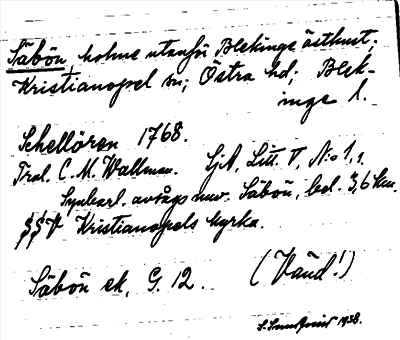 Säbön, holme utanför Blekinge östkust;
Kristianopel sn; Östra hd; Blek-
inge l.
Schellören 1768.
Trol. C. M. Wallman. SjA, Litt. V, No 1,1.
Synbarl. avtågs nuv. Säbön, bel. 3,6 km.
SSV Kristianopels kyrka.
Säbön ek, G. 12. (Vänd!)
1938.